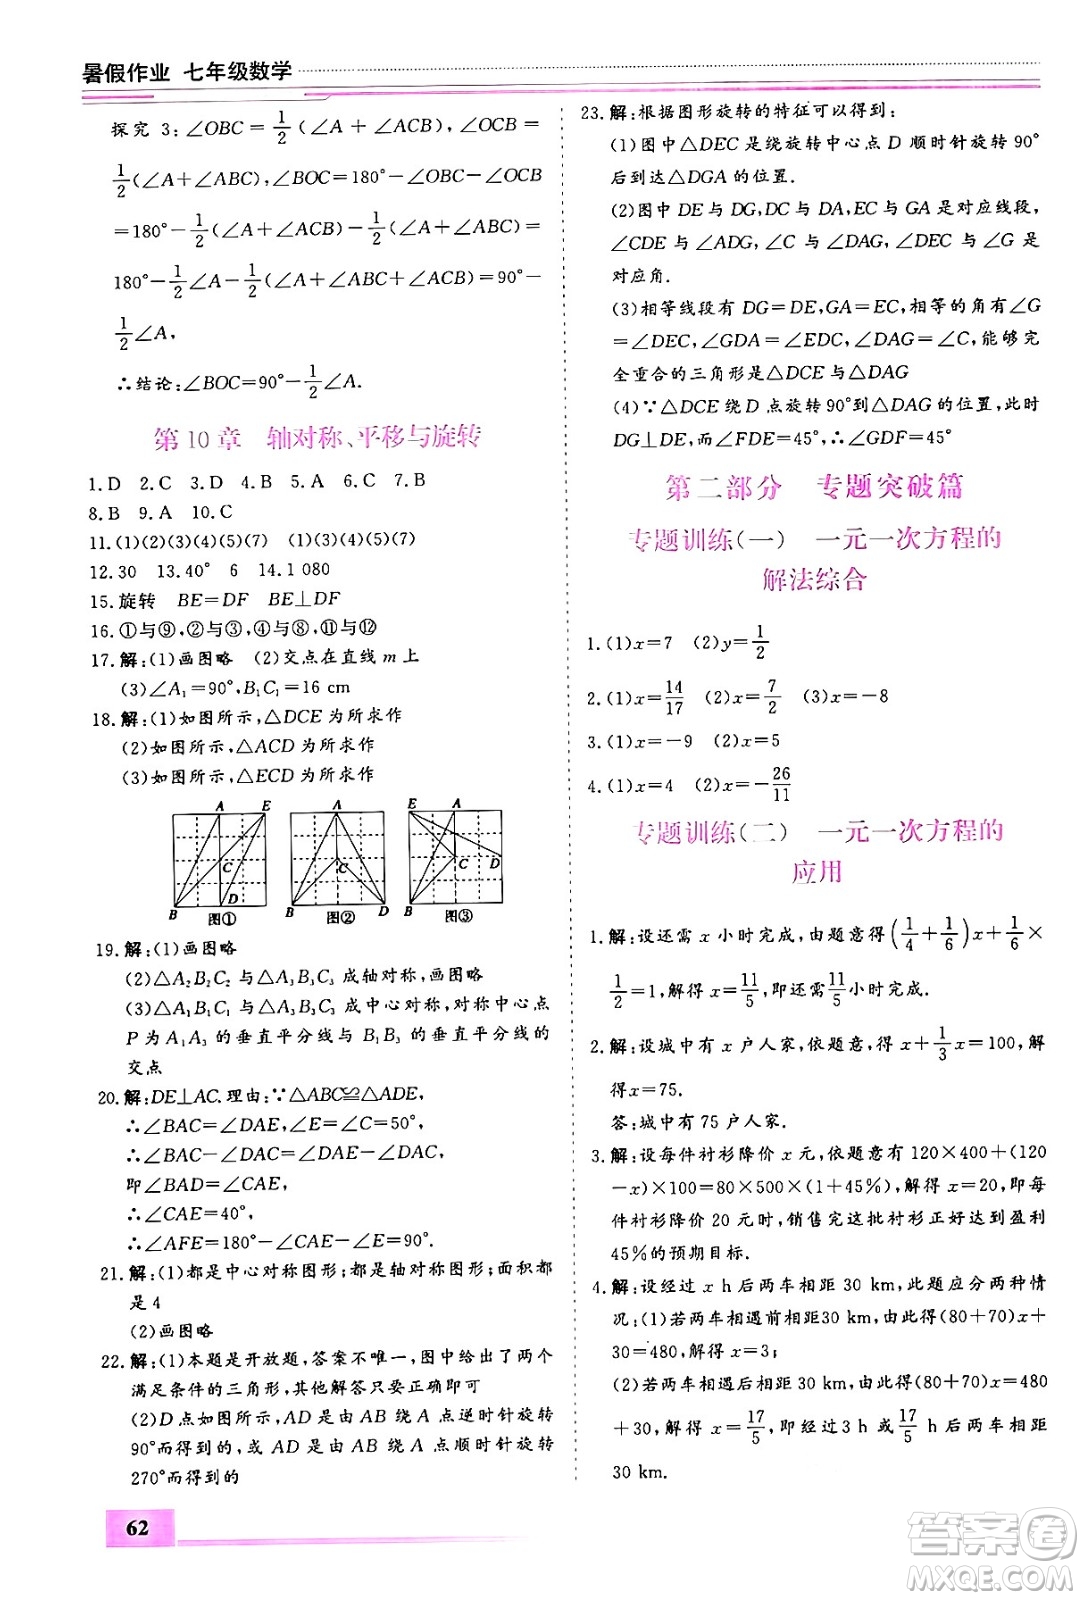 暑假作业 七年级数学
探究 3:∠OBC=1/2(∠A+∠ACB),∠OCB=
1/2(∠A+∠ABC),∠BOC=180°-∠OBC-∠OCB
=180°-1/2(∠A+∠ACB)-1/2(∠A+∠ABC)=
180°-1/2∠A-1/2(∠A+∠ABC+∠ACB)=90°-
1/2∠A,
∴结论:∠BOC=90°-1/2∠A.
第 10 章 轴对称、平移与旋转
1.D 2.C 3.D 4.D 5.C 6.A 7.C
8.B 9.A 10.C
11.(1)(2)(3)(4)(5)(7) (1)(3)(4)(5)(7)
12.30 13.40° 6 14.1 080
15.旋转 BE=DF BE⊥DF
16.①与⑨,②与③,④与⑧,⑪与⑫
17.解:(1)画图略 (2)交点在直线 m 上
(3)∠A₁=90°,B₁C₁=16 cm
18.解:(1)如图所示,△DCE 为所求作
(2)如图所示,△ACD 为所求作
(3)如图所示,△ECD 为所求作
A E B C D 图①
A B C D 图②
E A B C D 图③
19.解:(1)画图略
(2)△A₂B₂C₂ 与△A₃B₃C₃ 成轴对称,画图略
(3)△A₁B₁C₁ 与△A₃B₃C₃ 成中心对称,对称中心点
P 为 A₁A₃ 的垂直平分线与 B₁B₃ 的垂直平分线的
交点
20.解:DE⊥AC.理由:∵△ABC≌△ADE,
∴∠BAC=∠DAE,∠E=∠C=50°
∴∠BAC-∠DAC=∠DAE-∠DAC,
即∠BAD=∠CAE,
∴∠CAE=40°,
∴∠AFE=180°-∠CAE-∠E=90°.
21.解:(1)都是中心对称图形;都是轴对称图形;面积都
是 4
(2)画图略
22.解:(1)本题是开放题,答案不唯一,图中给出了两个
满足条件的三角形,其他解答只要正确即可
(2)D 点如图所示,AD 是由 AB 绕 A 点逆时针旋转
90°而得到的,或 AD 是由 AB 绕 A 点顺时针旋转
270°而得到的
62
23.解:根据图形旋转的特征可以得到:
(1)图中△DEC 是绕旋转中心点 D 顺时针旋转 90°
后到达△DGA 的位置.
(2)图中 DE 与 DG,DC 与 DA,EC 与 GA 是对应线段,
∠CDE 与∠ADG,∠C 与∠DAG,∠DEC 与∠G 是
对应角.
(3)相等线段有 DG=DE,GA=EC,相等的角有∠G
=∠DEC,∠GDA=∠EDC,∠DAG=∠C,能够完
全重合的三角形是△DCE 与△DAG
(4)∵△DCE 绕 D 点旋转 90°到△DAG 的位置,此时
DG⊥DE,而∠DFE=45°,∴∠GDF=45°
第二部分 专题突破篇
专题训练(一) 一元一次方程的
解法综合
1.(1)x=7 (2)y=1/2
2.(1)x=14/17 (2)x=7/2 (3)x=-8
3.(1)x=-9 (2)x=5
4.(1)x=3 (2)x=-26/11
专题训练(二) 一元一次方程的
应用
1.解:设还需 x 小时完成,由题意得(1/4+1/6)x+1/6×
1/2=1,解得 x=11/5,即还需11/5小时完成.
2.解:设城中有 x 户人家,依题意,得 x+1/3x=100,解
得 x=75.
答:城中有 75 户人家.
3.解:设每件衬衫降价 x 元,依题意有 120×400+(120
-x)×100=80×500×(1+45%),解得 x=20,即每
件衬衫降价 20 元时,销售完这批衬衫正好达到盈利
45%的预期目标.
4.解:设经过 x h 后两车相距 30 km,此题应分两种情
况:(1)若两车相遇前相距30 km,则有(80+70)x+
30=480,解得 x=3;
(2)若两车相遇后又相距 30 km,则有(80+70)x=480
+30,解得 x=17/5,即经过3 h 或17/5 h 后两车相距
30 km.
答案圈
MXQE.COM